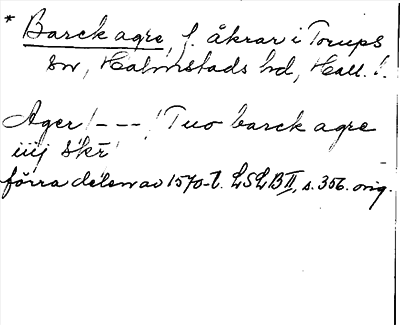 * Barck agre, f. åkrar i Torups
sn, Halmstads hd, Hall. l.
Ager / - - - / Tuo barck agre
iiij skr
förra delen av 1570-t. LSLB II, s. 356. orig.